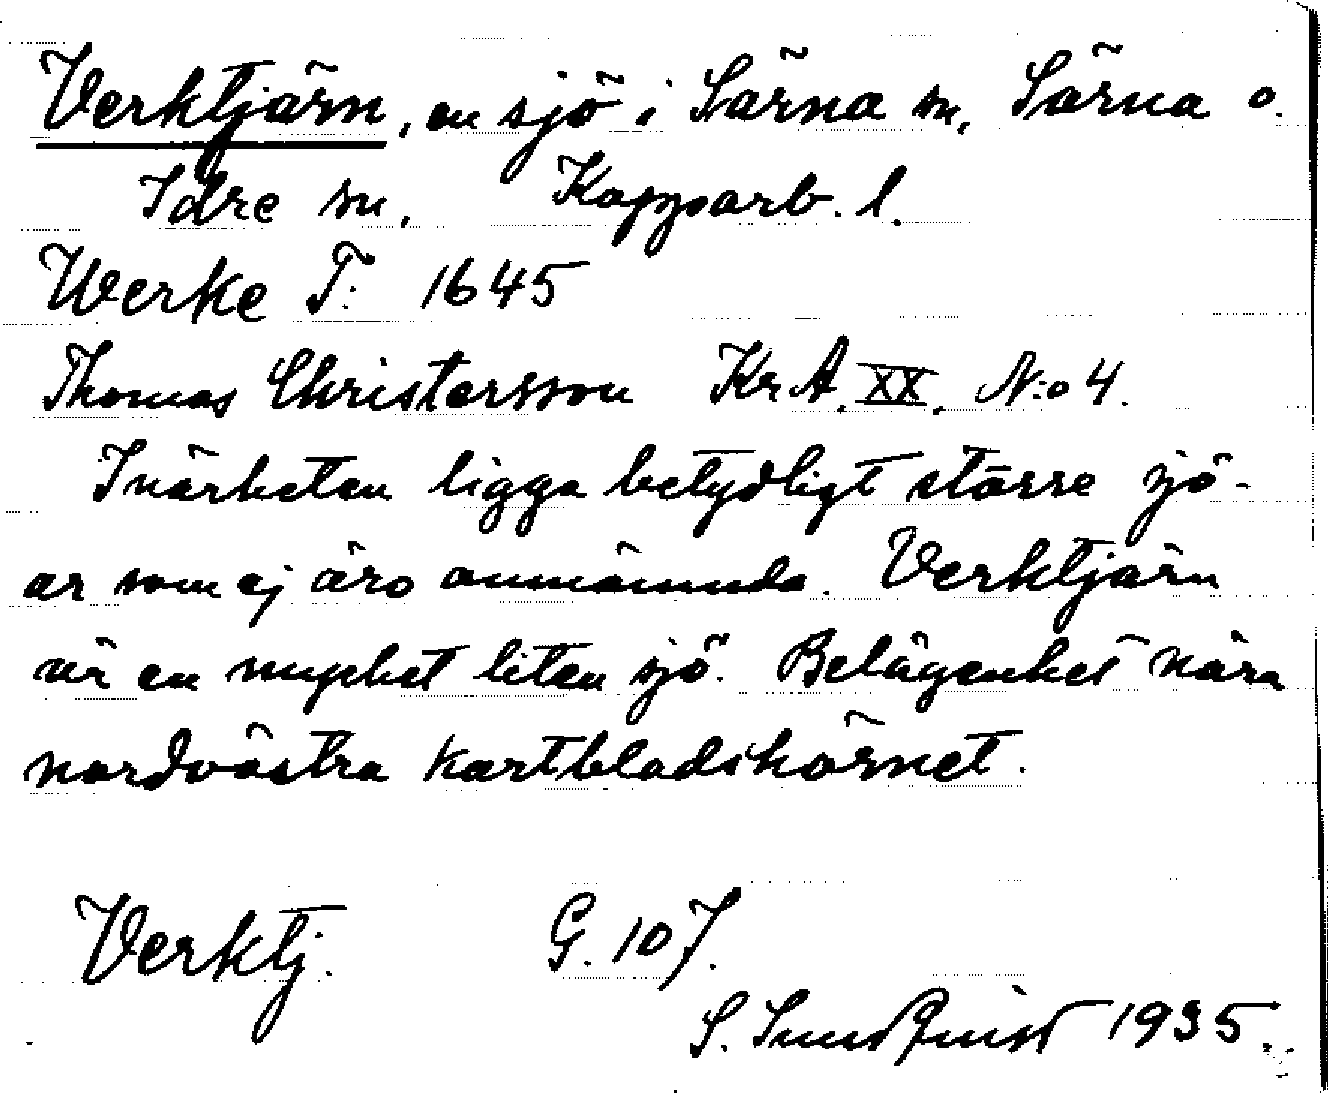 Verktjärn, en sjö i Särna sn, Särna o.
Idre sn, Kopparb. l.
Werke T: 1645
Thomas Christersson KrA. XX. N:o 4.
I närheten ligga betydligt större sjö-
ar som ej äro omnämnda. Verktjärn
är en mycket liten sjö. Belägenhet nära
nordvästra kartbladshörnet.
Verktj. G. 107.
S. Sundquist 1935.